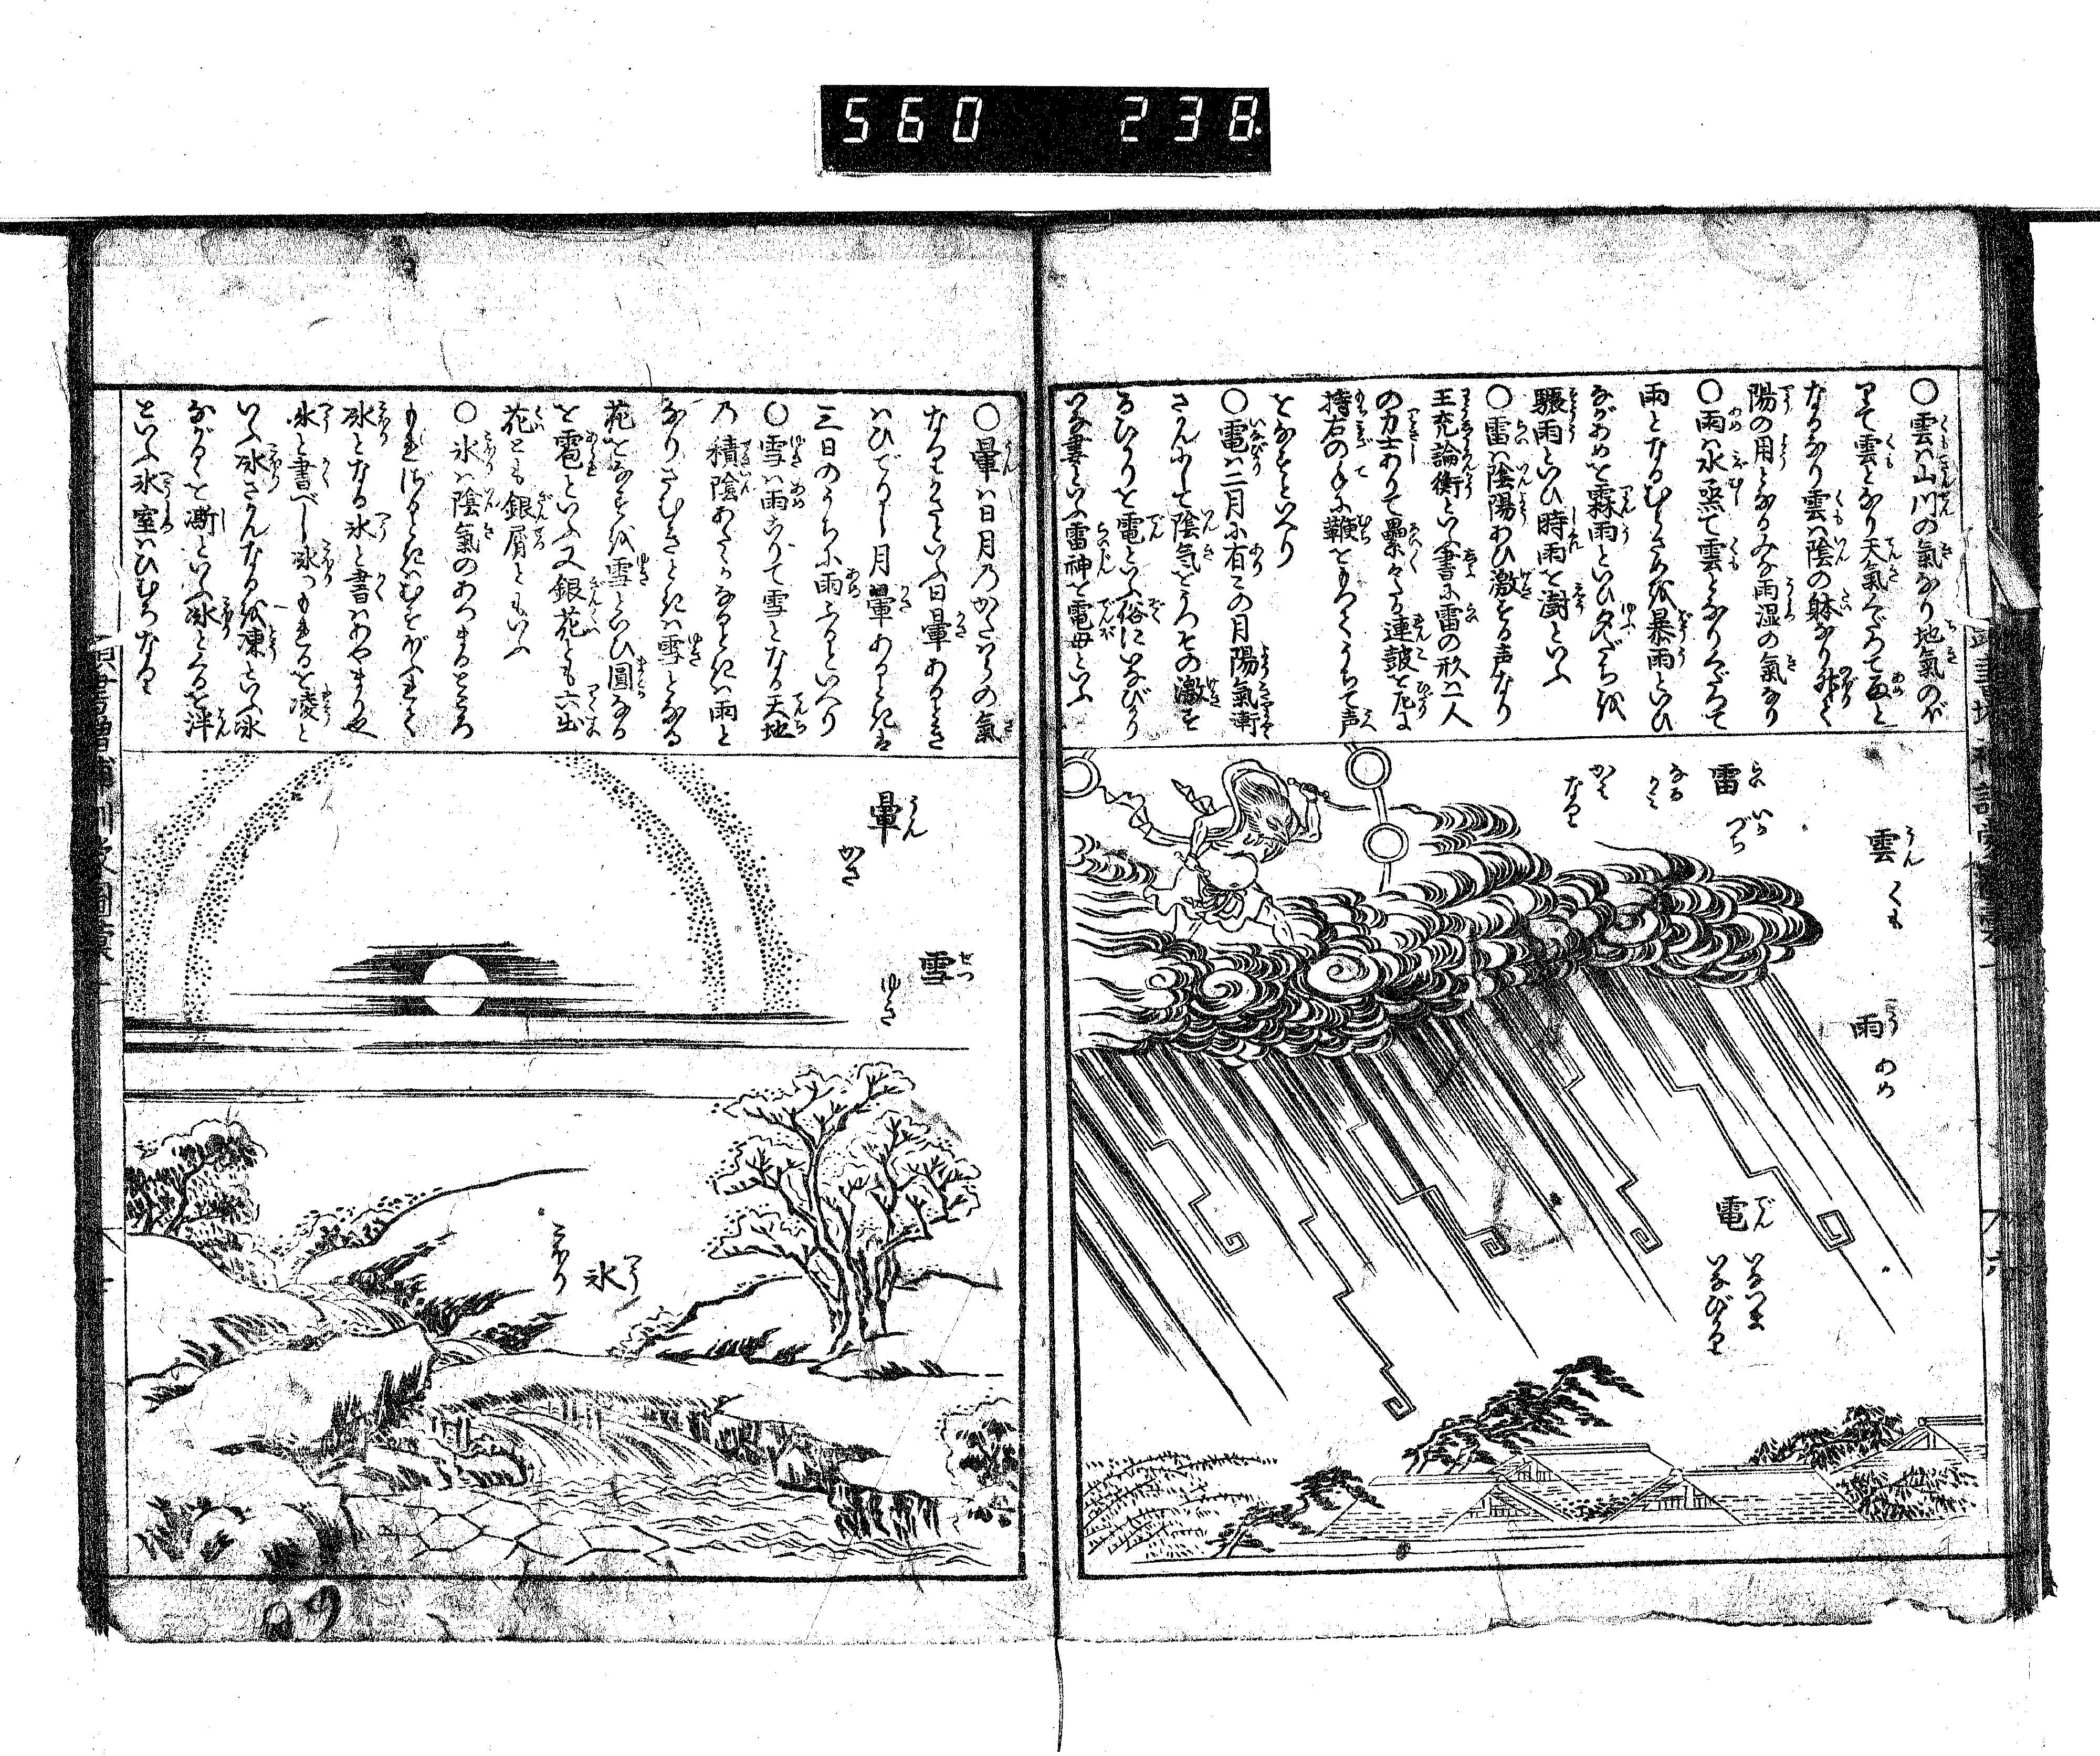 560 238.
○雲ハ山川の氣なり地氣のぼ
りて雲となり天氣くだつて雨と
なるなり雲ハ陰の躰なり
陽の用となるみな雨湿の氣なり
○雨ハ水蒸て雲となりくだつて
雨となるむらさめを暴雨といひ
ながあめを霖雨といひ夕だちを
驟雨といひ時雨を澍といふ
○雷ハ陰陽あひ激する声なり
王充論衡といふ書に雷の形ハ人
の力士ありて纍々たる連鼓を左に
持右の手に鞭をもつてうちて声
をなすといへり
○電ハ二月に有この月陽氣漸
さんにして陰気をうつその激す
るひかりを電といふ俗にいなびかり
いな妻といふ雷神を電母といふ
雲 うん くも
雷 らい いかづち
なるかミ
かミなり
雨 う あめ
電 でん いなづま
いなびかり
○暈ハ日月乃かさハりの氣
なりかさといふ日暈あるとき
ハひでりし月暈あるときハ
三日のうちに雨ふるといへり
○雪ハ雨こりて雪となる天地
乃積陰あたゝかなるときハ雨と
なりさむきときハ雪となる
花をなすを雪といひ圓なる
を雹といふ又銀花とも六出
花とも銀屑ともいふ
○氷ハ陰氣のあつまるところ
氷となる氷と書ハあやまり也
冰と書べし氷つもれるを凌と
いふ氷さかんなるを凍といふ氷
ながるゝを澌といふ氷とくるを泮
といふ氷室ハひむろなり
暈 うん かさ
雪 せつ ゆき
氷 こほり